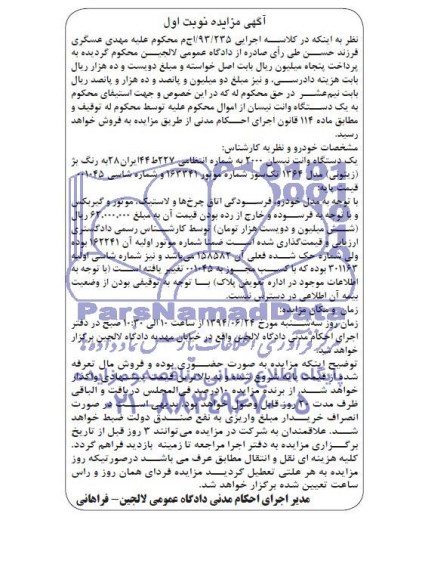 آگهی مزایده نوبت اول
نظر به اینکه در کلاسه اجرایی ۹۳/۲۳۵/اج‌م محکوم علیه مهدی عسگری
فرزند حسن طی رأی صادره از دادگاه عمومی لالجین محکوم گردیده به
پرداخت پنجاه میلیون ریال بابت اصل خواسته و مبلغ دویست و ده هزار ریال
بابت هزینه دادرسی، و نیز مبلغ دو میلیون و پانصد و ده هزار و پانصد ریال
بابت نیم‌عشر در حق محکوم له که در این خصوص و جهت استیفای محکوم
به یک دستگاه وانت نیسان از اموال محکوم علیه توسط محکوم له توقیف و
مطابق ماده ۱۱۴ قانون اجرای احکام مدنی از طریق مزایده به فروش خواهد
رسید.
مشخصات خودرو و نظریه کارشناس:
یک دستگاه وانت نیسان ۲۰۰۰ به شماره انتظامی ۲۲۷ط۴۴ایران۲۸به رنگ بژ
(زیتونی) مدل ۱۳۶۴ تک‌سوز شماره موتور ۱۶۳۳۴۱ و شماره شاسی ۰۰۱۰۴۵
قیمت پایه:
با توجه به مدل خودرو، فرسودگی اتاق چرخ‌ها و لاستیک، موتور و گیربکس
و با توجه به فرسوده و خارج از رده بودن قیمت آن به مبلغ ۶۲.۰۰۰.۰۰۰ ریال
(شش میلیون و دویست هزار تومان) توسط کارشناس رسمی دادگستری
ارزیابی و قیمت‌گذاری شده است ضمنا شماره موتور اولیه آن ۱۶۲۲۴۱ بوده
ولی شماره حک شده فعلی آن ۱۵۸۵۸۲ می‌باشد و نیز شماره شاسی اولیه
۳۰۱۱۶۳ بوده که با کسب مجوز به ۰۰۱۰۴۵ تغییر یافته است (با توجه به
اطلاعات موجود در اداره تعویض پلاک) با توجه به توقیفی بودن از وضعیت
بیمه آن اطلاعی در دسترس نیست.
زمان و مکان مزایده:
زمان روز سه‌شنبه مورخ ۱۳۹۴/۰۶/۲۴ از ساعت ۱۰ الی ۱۰:۳۰ صبح در دفتر
اجرای احکام مدنی دادگاه لالجین واقع در خیابان مهدیه دادگاه لالجین برگزار
خواهد شد.
توضیح اینکه مزایده به صورت حضوری بوده و فروش مال تعرفه
شده از قیمت پایه شروع و به بالاترین قیمت پیشنهادی واگذار
خواهد شد. از برنده مزایده ۱۰درصد فی‌المجلس دریافت و الباقی
ظرف مدت ۳۰ روز قابل وصول خواهد بود. بدیهی است در صورت
انصراف خریدار مبلغ واریزی به نفع صندوق دولت ضبط خواهد
شد. علاقمندان به شرکت در مزایده می‌توانند ۳ روز قبل از تاریخ
برگزاری مزایده به دفتر اجرا مراجعه تا زمینه بازدید فراهم گردد.
کلیه هزینه ای نقل و انتقال مطابق عرف می باشد درصورتیکه روز
مزایده به هر علتی تعطیل گردید مزایده فردای همان روز و راس
ساعت تعیین شده برگزار خواهد شد.
مدیر اجرای احکام مدنی دادگاه عمومی لالجین- فراهانی
ParsNamadData
مرکز فرآوری اطلاعات پارس نماد داده ها
۰۲۱-۸۸۳۴۹۶۷۰-۵